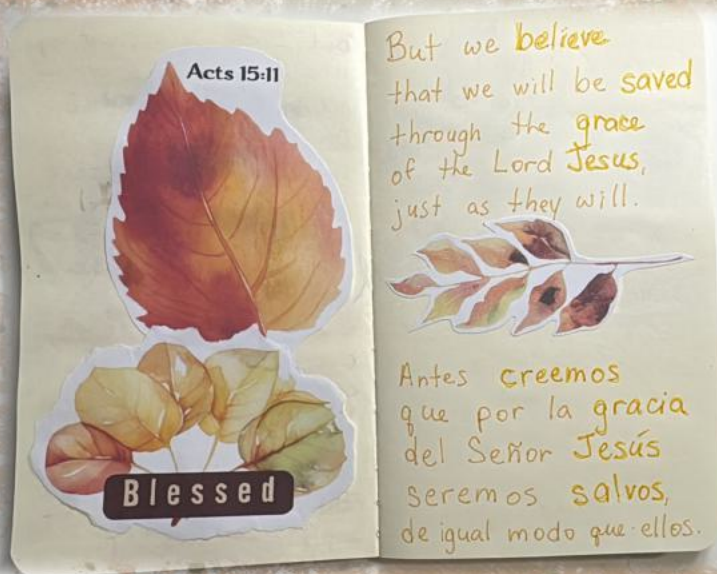 Acts 15:11
Blessed
But we believe
that we will be saved
through the grace
of the Lord Jesus,
just as they will.
Antes creemos
que por la gracia
del Señor Jesús
seremos salvos,
de igual modo que ellos.